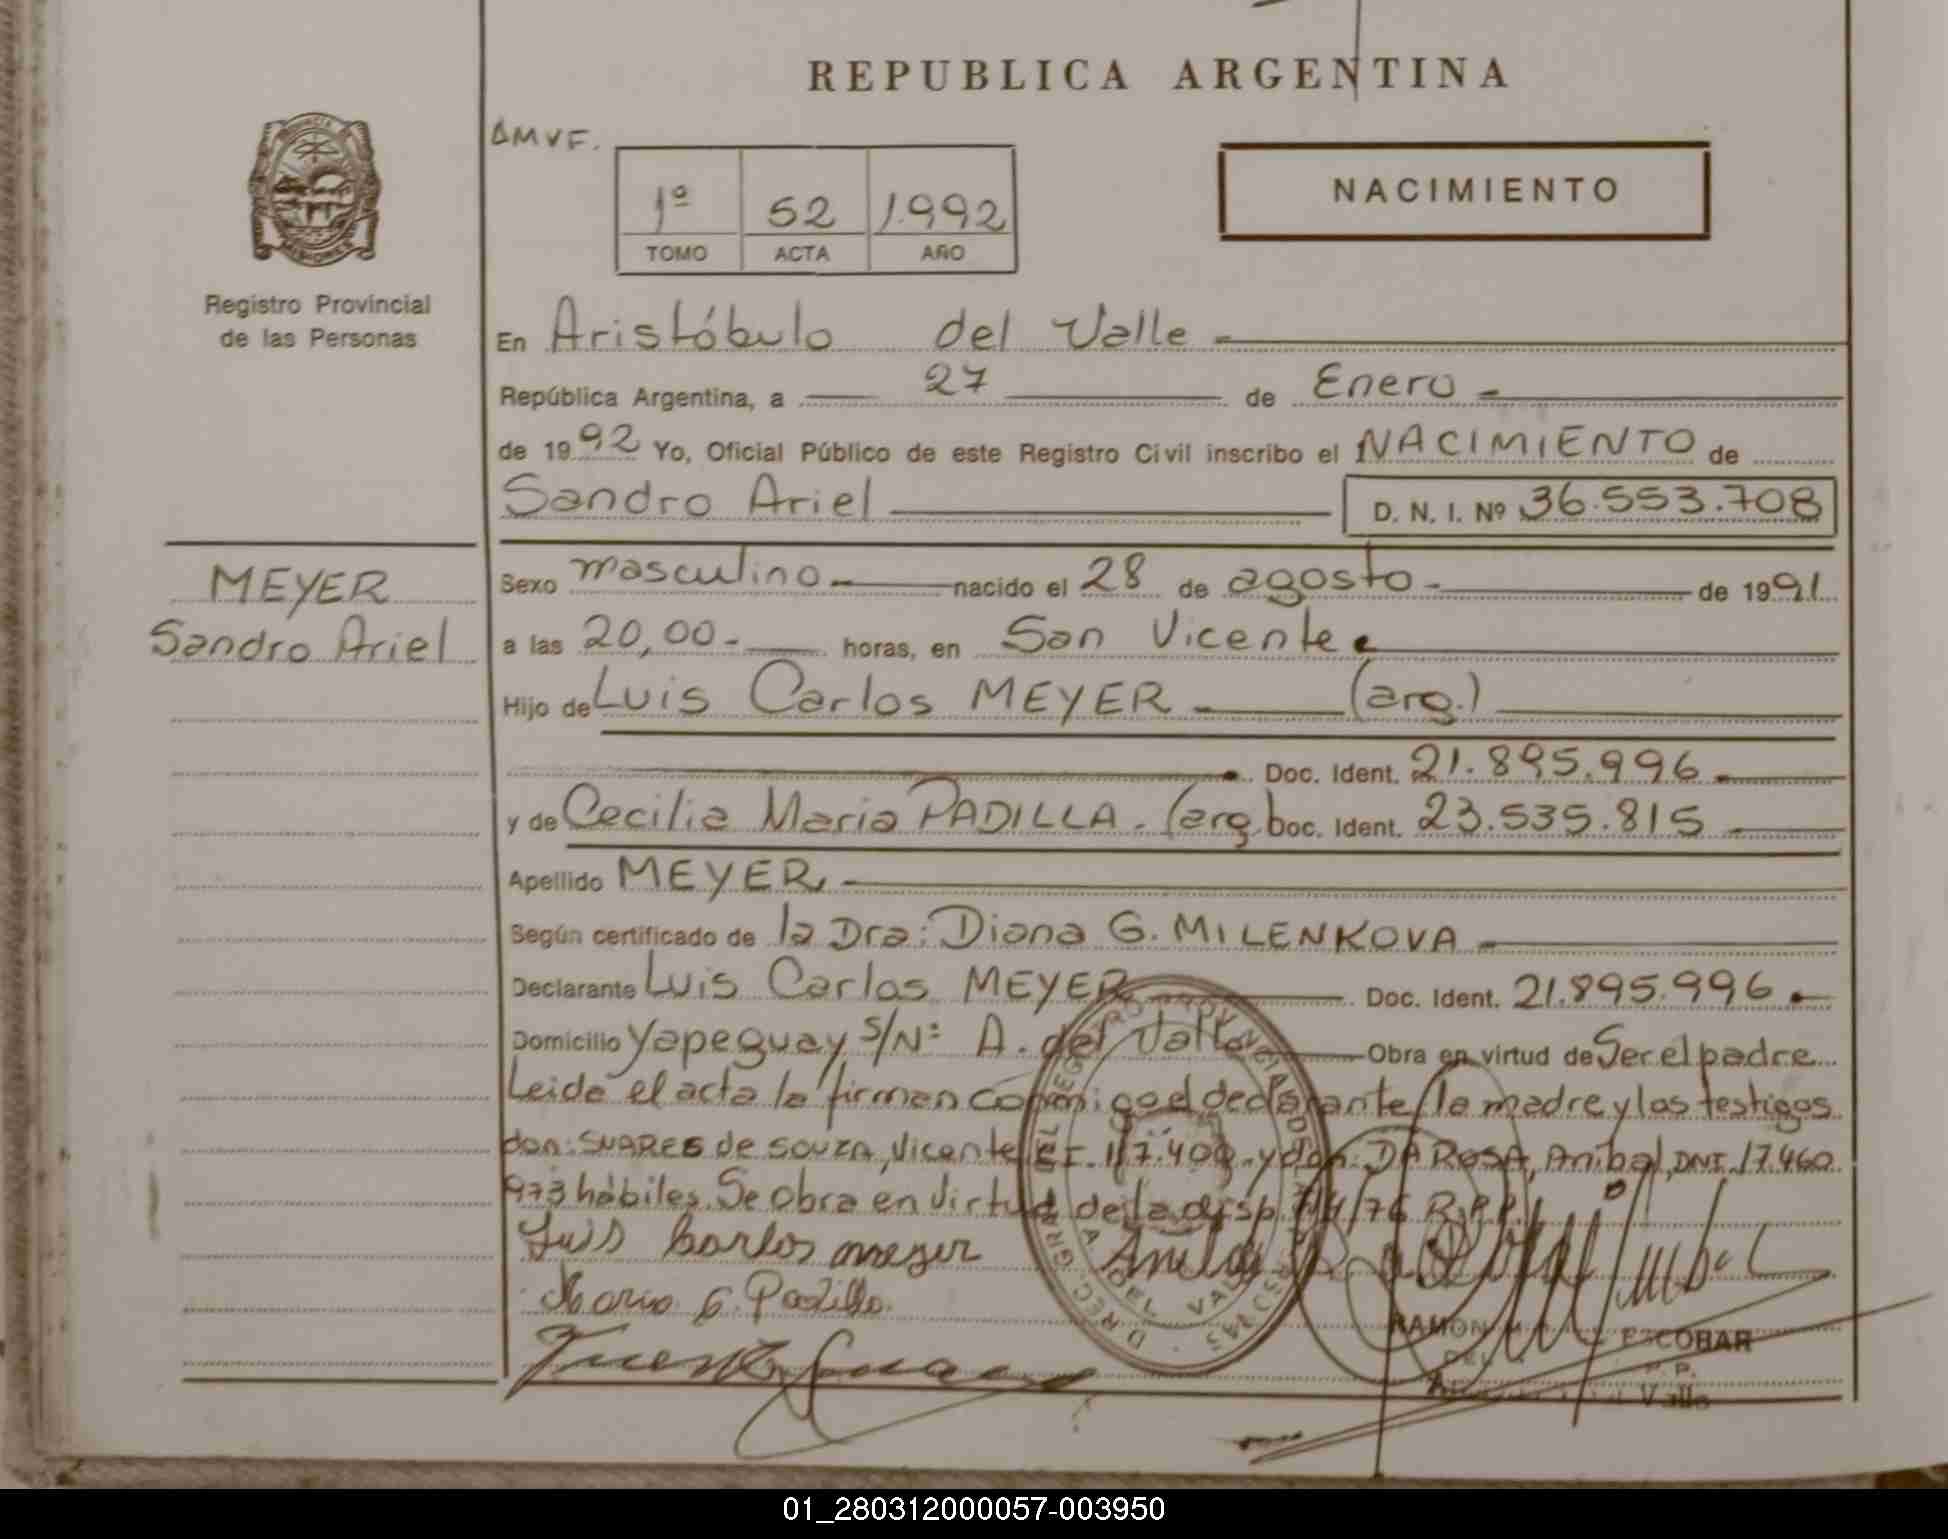 REPUBLICA ARGENTINA
AMVF.
1º 52 1.992
TOMO ACTA AÑO
NACIMIENTO
Registro Provincial
de las Personas
En Aristóbulo del Valle
República Argentina, a 27 de Enero
de 1992 Yo, Oficial Público de este Registro Civil inscribo el NACIMIENTO de
Sandro Ariel D. N. I. Nº 36.553.708
MEYER
Sandro Ariel
Sexo masculino nacido el 28 de agosto de 1991
a las 20,00 horas, en San Vicente
Hijo de Luis Carlos MEYER (arg.)
Doc. Ident. 21.895.996
y de Cecilia Maria PADILLA. (arg. Doc. Ident. 23.535.815
Apellido MEYER
Según certificado de la Dra: Diana G. MILENKOVA
Declarante Luis Carlos MEYER Doc. Ident. 21.895.996
Domicilio Yapeguay S/Nº A. del Valle Obra en virtud de Ser el padre
Leida el acta la firman conmigo el declarante, la madre y los testigos
don: SUARES de SOUZA, Vicente 117.400. y don: DA ROSA, Anibal, DNI. 17.460
973 hábiles. Se Obra en Virtud de la disp. /76 R.P.P.
Luis Carlos meyer
Maria C. Padilla
RAMON ESCOBAR
Valle
01_280312000057-003950